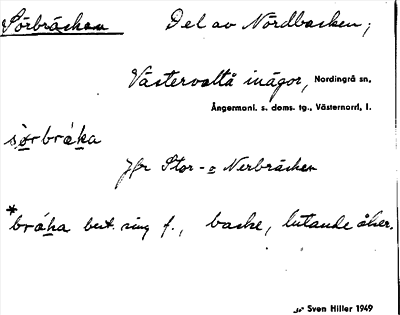 Sörbräckan Del av Nördbacken;
Västervattå inägor, Nordingrå sn,
Ångermanl. s. doms. tg., Västernorrl. l.
sø̀rbrá́ka
Jfr Stor- o Nerbräckan
*bráka best. sing f., backe, lutande åker.
Sven Hiller 1949